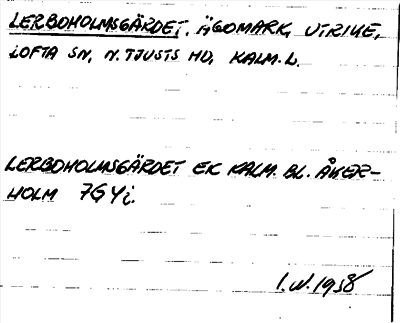 LERBOHOLMSGÄRDET, ÄGOMARK, UTRIKE,
LOFTA SN, N. TJUSTS HD, KALM. L.
LERBOHOLMSGÄRDET EK KALM. BL. ÅKER-
HOLM 7G Y i.
I.W. 1958